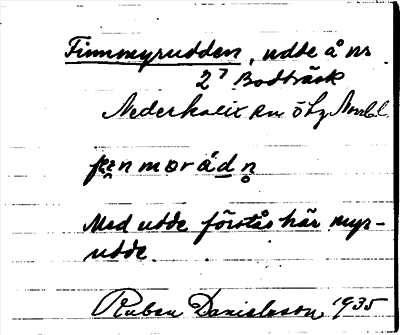 Finnmyrudden, udde å nr
27 Bodträsk
Nederkalix sn
Med udde förstås här myr-
udde.
Ruben Danielsson 1935